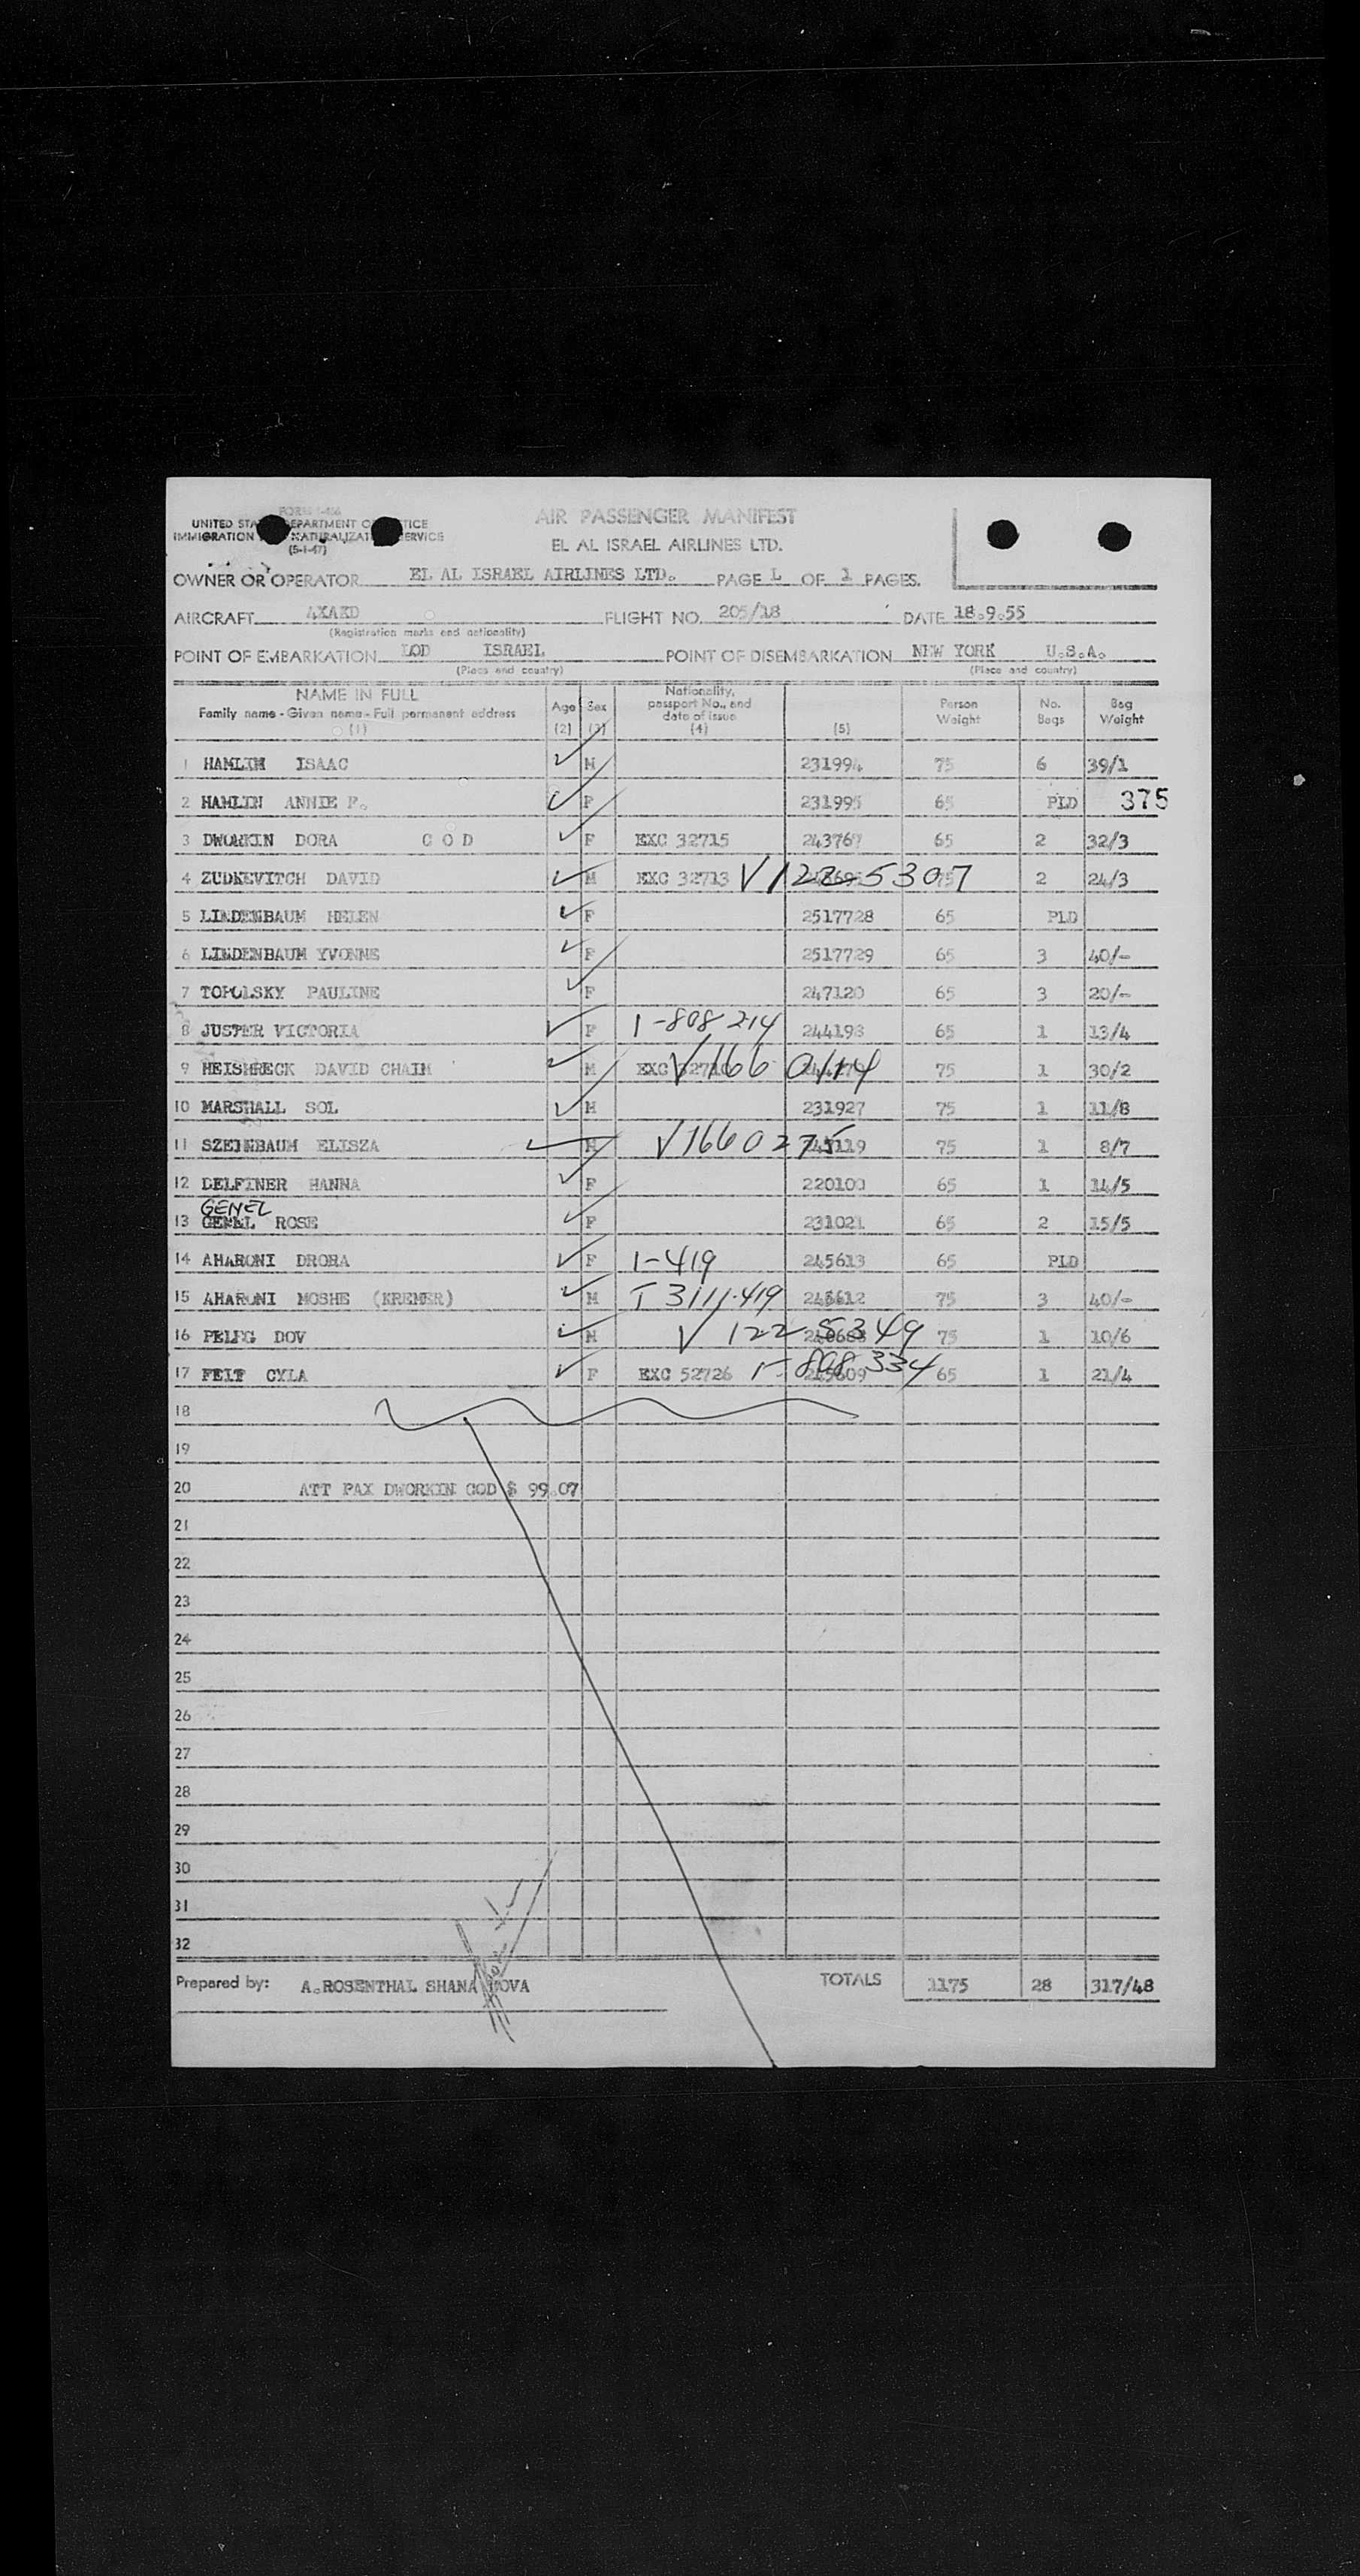 FORM I-466
UNITED STATES DEPARTMENT OF JUSTICE
IMMIGRATION NATURALIZATION SERVICE
(5-1-47)
AIR PASSENGER MANIFEST
EL AL ISRAEL AIRLINES LTD.
OWNER OR OPERATOR EL AL ISRAEL AIRLINES LTD. PAGE 1 OF 1 PAGES.
AIRCRAFT 4XAKD FLIGHT NO. 205/18 DATE 18.9.55
(Registration marks and nationality)
POINT OF EMBARKATION LOD ISRAEL POINT OF DISEMBARKATION NEW YORK U.S.A.
(Place and country) (Place and country)
NAME IN FULL
Family name - Given name - Full permanent address
(1)
Age
(2)
Sex
(3)
Nationality,
passport No., and
date of issue
(4)
(5)
Person
Weight
No.
Bags
Bag
Weight
1 HAMLIN ISAAC M 231994 75 6 39/1
2 HAMLIN ANNIE F. F 231995 65 PLD 375
3 DWORKIN DORA C O D F EXC 32715 243767 65 2 32/3
4 ZUDKEVITCH DAVID M EXC 32713 V1225307 2 24/3
5 LINDENBAUM HELEN F 2517728 65 PLD
6 LINDENBAUM YVONNE F 2517729 65 3 40/-
7 TOPOLSKY PAULINE F 247120 65 3 20/-
8 JUSTER VICTORIA F 1-808 214 244193 65 1 13/4
9 HEISHRECK DAVID CHAIM M EXC V1660114 75 1 30/2
10 MARSHALL SOL M 231927 75 1 11/8
11 SZEINBAUM ELISZA M V1660275 75 1 8/7
12 DELFINER HANNA F 220100 65 1 14/5
GENEL
13 ROSE F 231021 65 2 15/5
14 AHARONI DRORA F 1-419 245613 65 PLD
15 AHARONI MOSHE (KREMER) M T 3111-419 245612 75 3 40/-
16 PELEG DOV M V 1225349 75 1 10/6
17 FEIT CYLA F EXC 52726 1-808 334 65 1 21/4
18
19
20 ATT PAX DWORKIN COD $ 99.07
21
22
23
24
25
26
27
28
29
30
31
32
Prepared by: A.ROSENTHAL SHANA TOVA TOTALS 1175 28 317/48